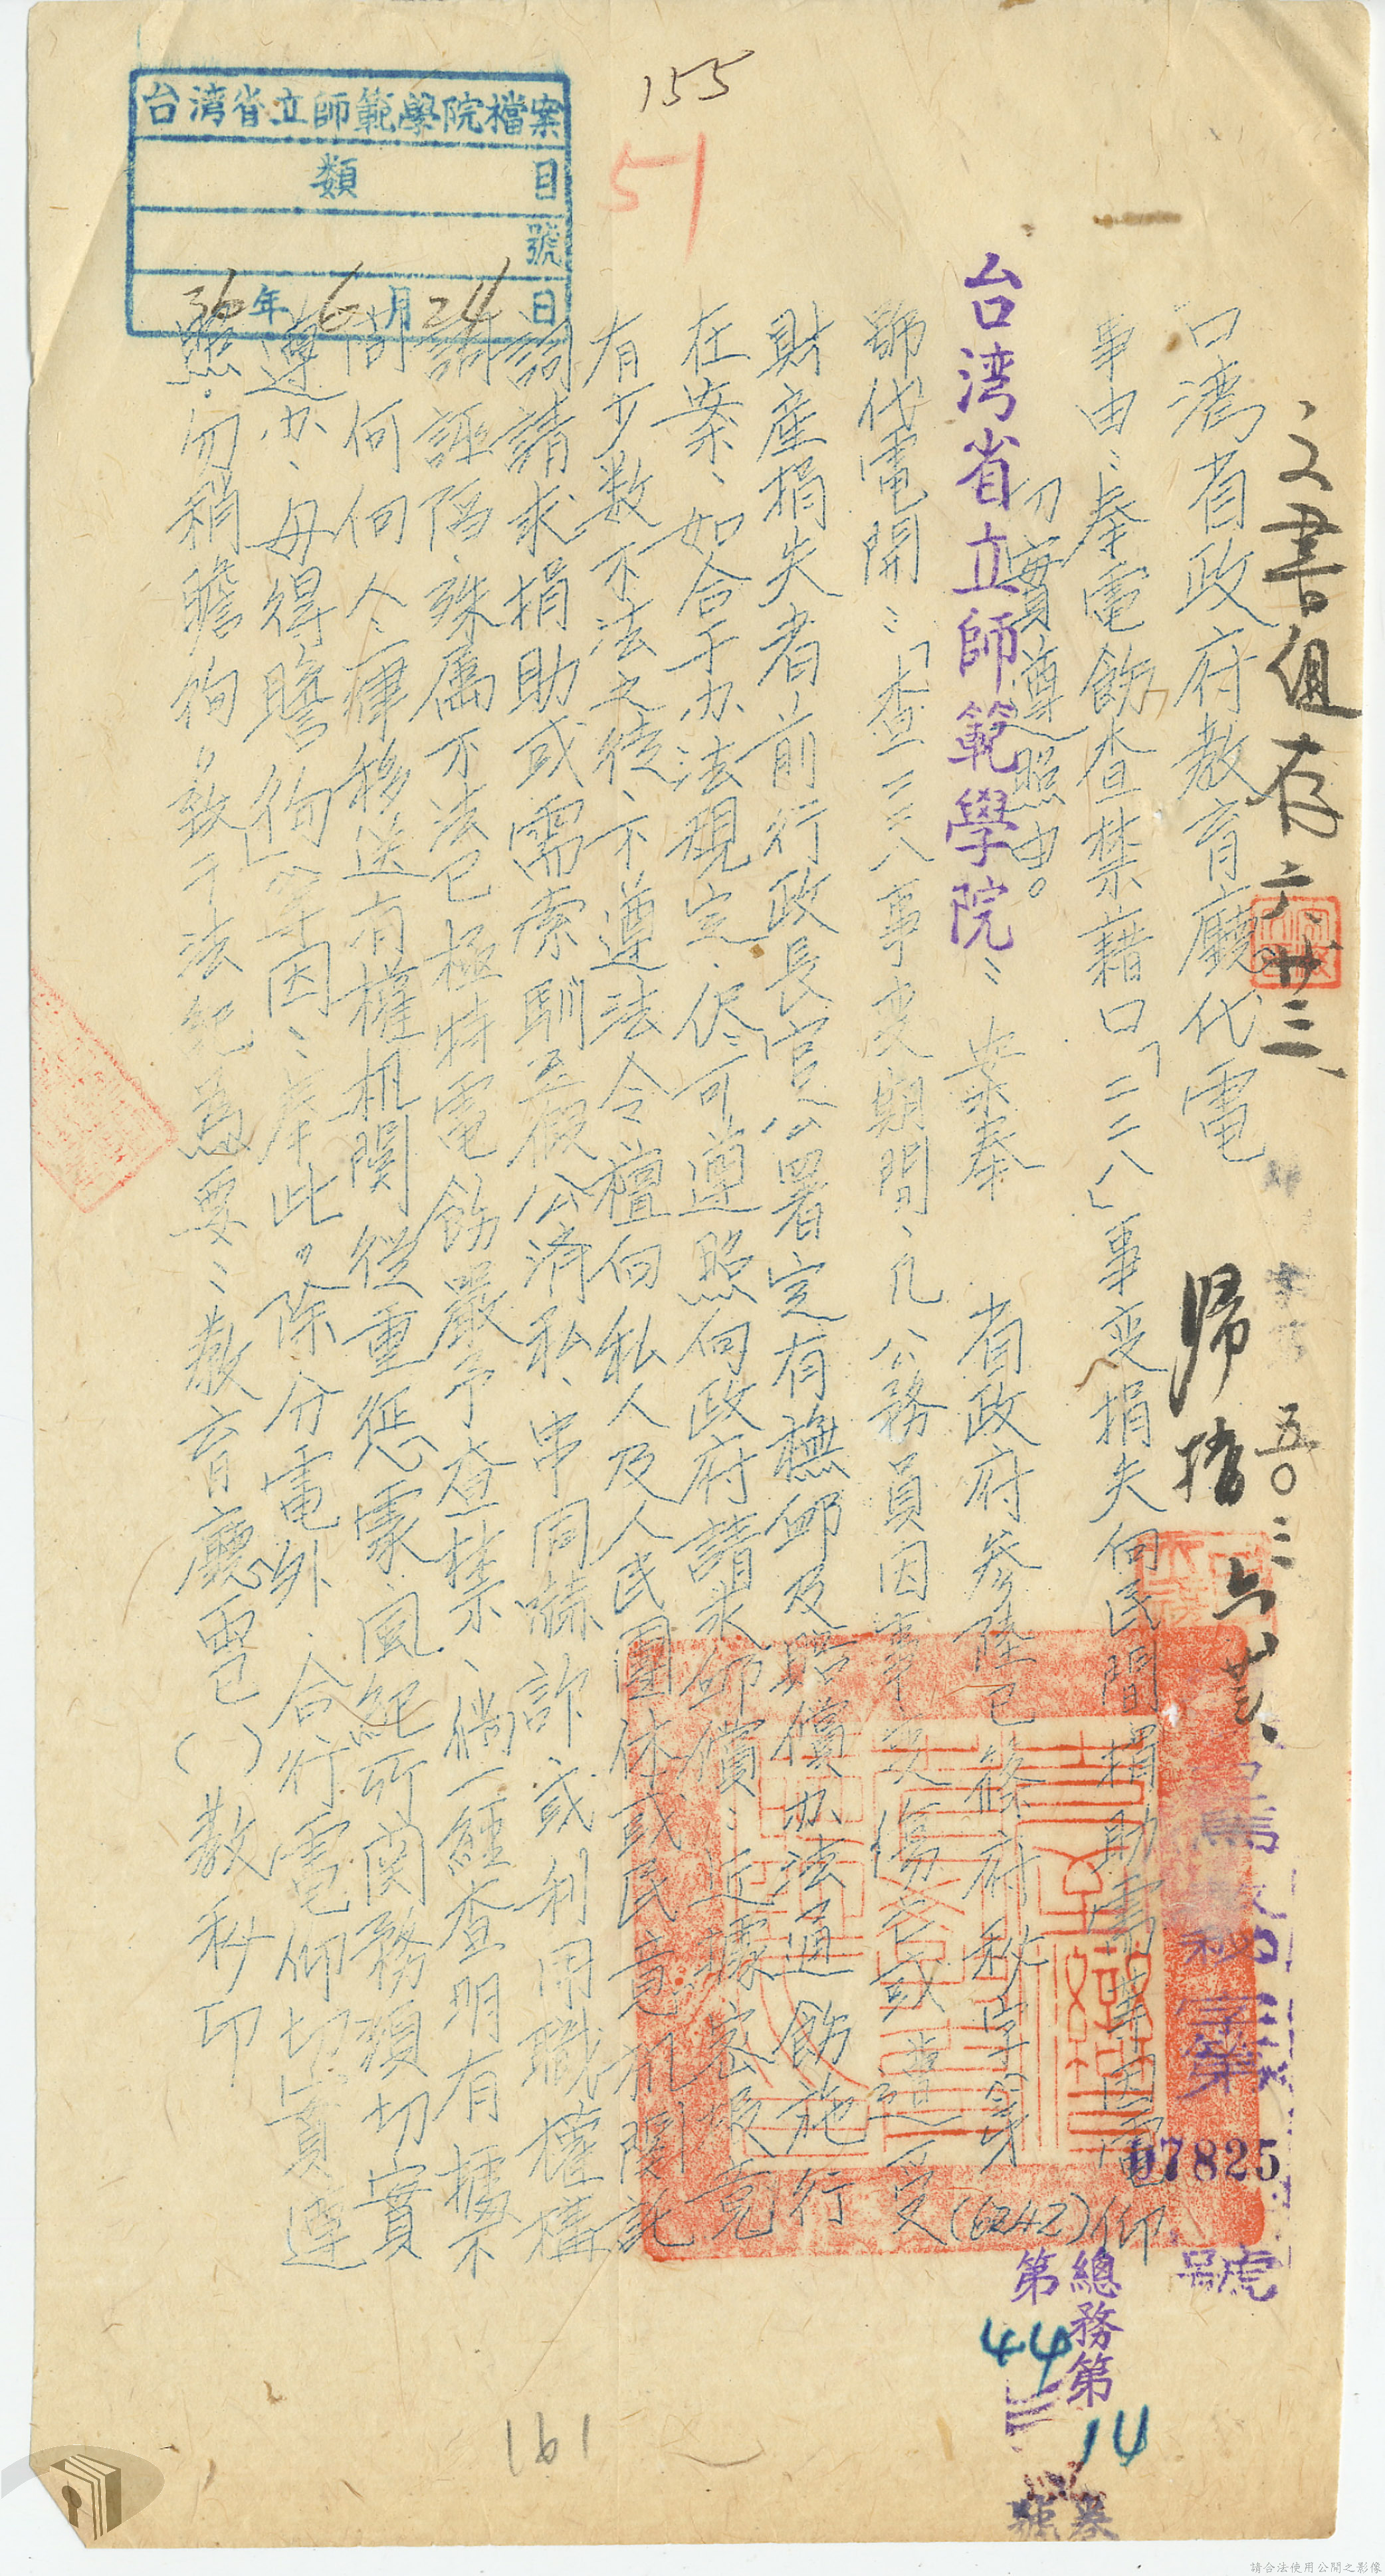 155
51
台湾省立師範學院檔案
類 目
號
36年6月24日
文書組存 六、廿三、
歸檔 六、廿六、
五〇、三
台灣省政府教育廳代電
號
07825
事由:奉電飭查禁藉口「二二八」事变損失向民間捐助需索因電仰
切實遵照由。
台湾省立師範學院:案奉 省政府参陸已篠府秘字第(6242)
號代電開:「查二二八事变期間、凡公務員因事变傷亡或遭受
財產損失者前行政長官公署定有撫卹及賠償办法通飭施行
在案、如合于办法規定、侭可遵照向政府請求卹償:近據密報竟
有少数不法之徒、不遵法令擅向私人及人民團体或民意机関託
詞請求捐助或需索馴至假公濟私、串同嚇詐或利用職權搆
誣陷、殊属不法已極特電飭嚴予查禁、倘一經查明有據不
問何人、一律移送有權机関從重惩處風紀所関務須切實
遵办、毋得瞻徇」等因、奉此。除分電外、合行電仰切實遵
照。勿稍瞻徇以致干法紀為要:教育廳電巳( )教秘印
總務第
14
第
44
號
161
請合法使用公開之影像